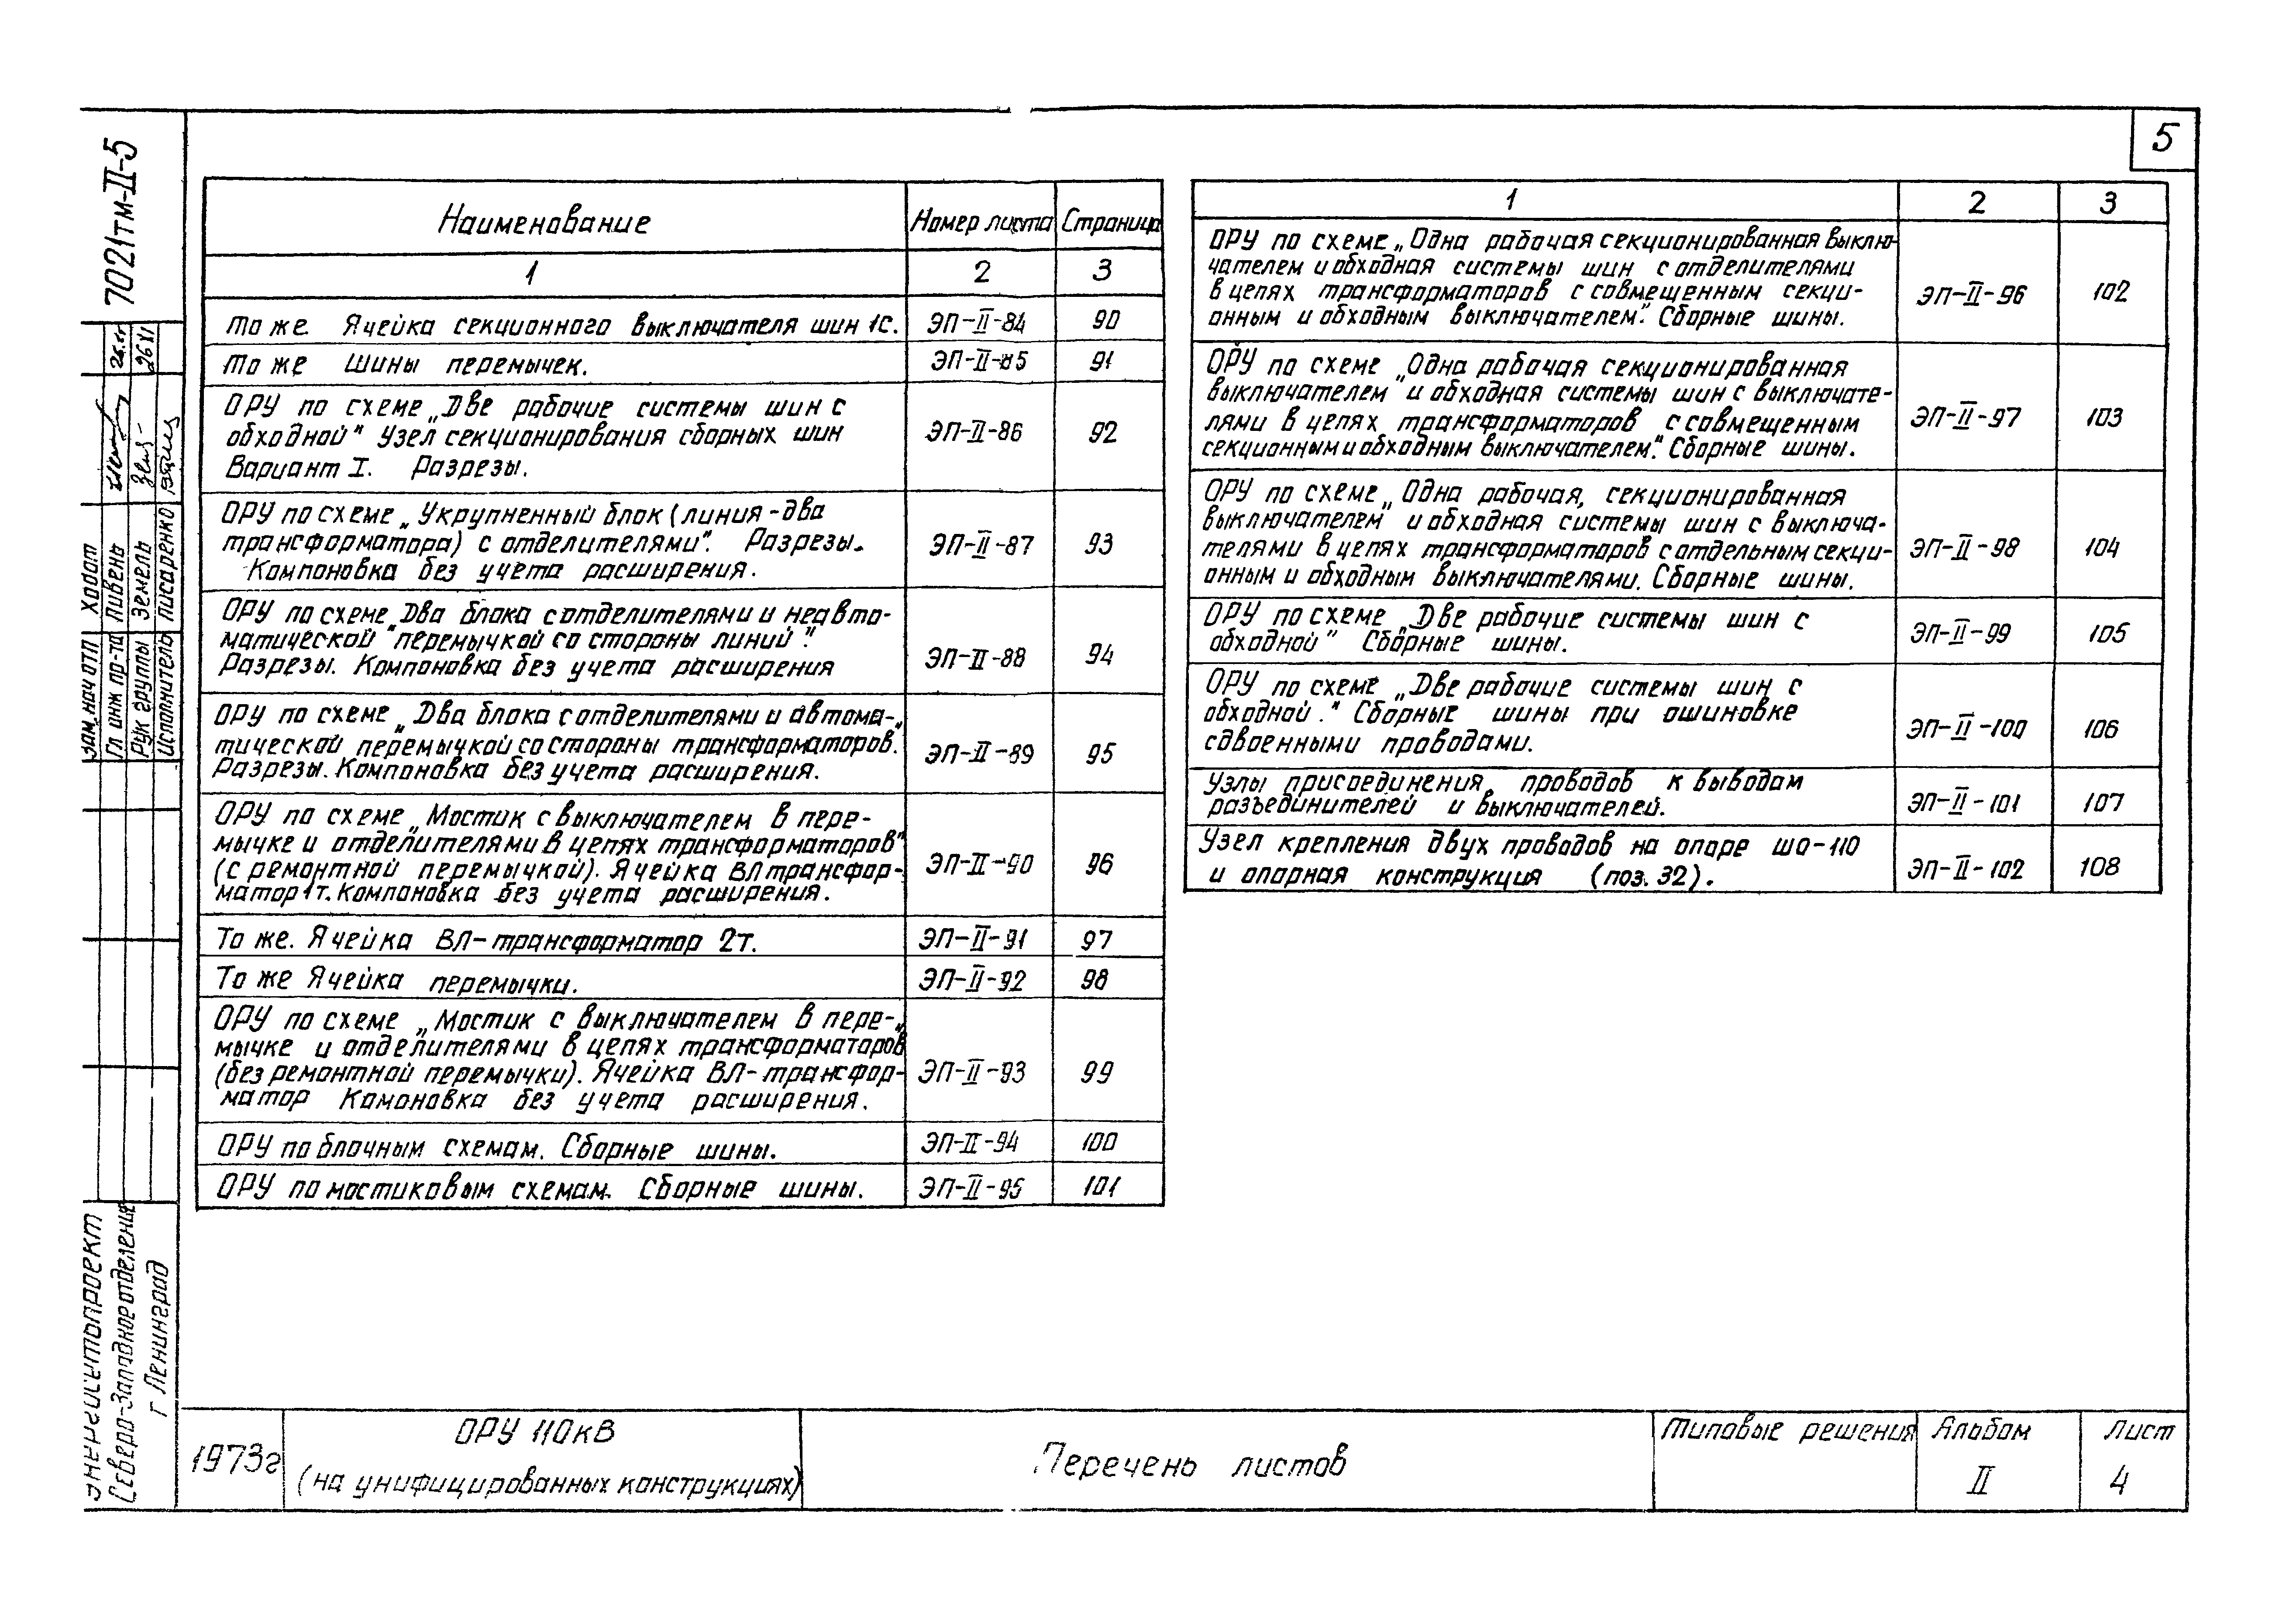 5
7021тм-II-5
Наименование
Номер листа
Страница
1
2
3
То же. Ячейка секционного выключателя шин 1с.
ЭП-II-84
90
То же Шины перемычек.
ЭП-II-85
91
ОРУ по схеме „Две рабочие системы шин с
обходной" Узел секционирования сборных шин
Вариант I. Разрезы.
ЭП-II-86
92
ОРУ по схеме „Укрупненный блок (линия-два
трансформатора) с отделителями". Разрезы.
Компоновка без учета расширения.
ЭП-II-87
93
ОРУ по схеме Два блока с отделителями и неавто-
матической "перемычкой со стороны линий".
Разрезы. Компоновка без учета расширения
ЭП-II-88
94
ОРУ по схеме „Два блока с отделителями и автома-
тической перемычкой со стороны трансформаторов".
Разрезы. Компоновка без учета расширения.
ЭП-II-89
95
ОРУ по схеме „Мостик с выключателем в пере-
мычке и отделителями в цепях трансформаторов"
(с ремонтной перемычкой). Ячейка ВЛ трансфор-
матор 1т. Компоновка без учета расширения.
ЭП-II-90
96
То же. Ячейка ВЛ-трансформатор 2т.
ЭП-II-91
97
То же Ячейка перемычки.
ЭП-II-92
98
ОРУ по схеме „Мостик с выключателем в пере-
мычке и отделителями в цепях трансформаторов"
(без ремонтной перемычки). Ячейка ВЛ-трансфор-
матор Комоновка без учета расширения.
ЭП-II-93
99
ОРУ по блочным схемам. Сборные шины.
ЭП-II-94
100
ОРУ по мостиковым схемам. Сборные шины.
ЭП-II-95
101
1
2
3
ОРУ по схеме „Одна рабочая секционированная выклю-
чателем и обходная системы шин с отделителями
в цепях трансформаторов с совмещенным секци-
онным и обходным выключателем". Сборные шины.
ЭП-II-96
102
ОРУ по схеме „Одна рабочая секционированная
выключателем" и обходная системы шин с выключате-
лями в цепях трансформаторов с совмещенным
секционным и обходным выключателем". Сборные шины.
ЭП-II-97
103
ОРУ по схеме „Одна рабочая, секционированная
выключателем" и обходная системы шин с выключа-
телями в цепях трансформаторов с отдельным секци-
онным и обходным выключателями. Сборные шины.
ЭП-II-98
104
ОРУ по схеме „Две рабочие системы шин с
обходной" Сборные шины.
ЭП-II-99
105
ОРУ по схеме „Две рабочие системы шин с
обходной." Сборные шины при ошиновке
сдвоенными проводами.
ЭП-II-100
106
Узлы присоединения проводов к выводам
разъединителей и выключателей.
ЭП-II-101
107
Узел крепления двух проводов на опоре ШО-110
и опорная конструкция (поз. 32).
ЭП-II-102
108
Зам. нач отп Ходот
Гл инж пр-та Пивень
Рук группы Земель
Исполнитель Писаренко
26 XI
Энергосетьпроект
Северо-Западное отделение
г Ленинград
1973г
ОРУ 110кВ
(на унифицированных конструкциях)
Перечень листов
Типовые решения
Альбом
II
Лист
4